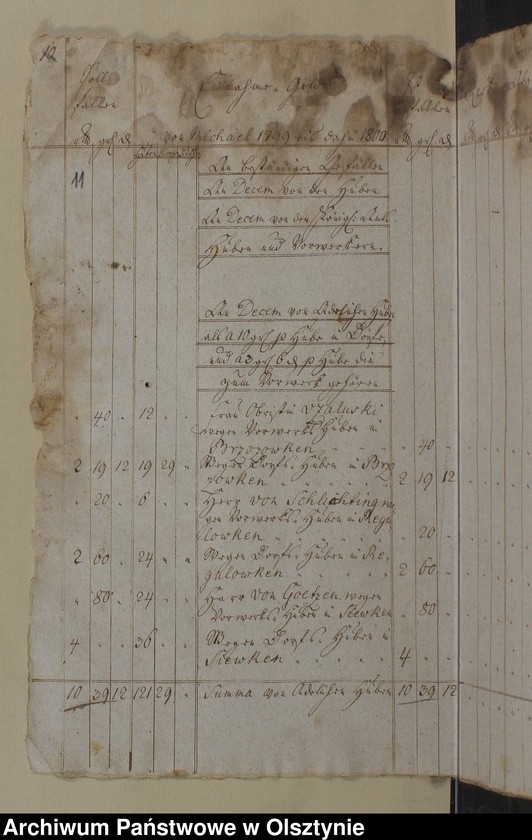 12
Soll fallen Einnahme Geld Ist gefallen
rtl grch d von Michael 1799 bis dahin 1800 rtl grch d
11 An beständigen Gefällen
An Decem von den Huben
An Decem von den Königl:
Huben und Vorwerkern.
An Decem von Adelichen Huben
als a 10 grch p Hube in Dörfer
und a 3 grch 6 d p Hube die
zum Vorwerk gehören
Frau Obristin v Zaluski
40 12 wegen Vorwerks Huben in
Brzozowken 40
2 19 12 19 29 Wegen Dorfs Huben in Brzo
zowken 2 19 12
20 6 Herr von Schlichting we
gen Vorwerks Huben in Regu
lowken 20
2 60 24 Wegen Dorfs Huben in Re
gulowken 2 60
80 24 Herr von Goetzen wegen
Vorwerks Huben in Siewken 80
4 36 Wegen Dorfs Huben in
Siewken 4
10 39 12 121 29 Summa von Adelichen Huben 10 39 12
Archiwum Państwowe w Olsztynie